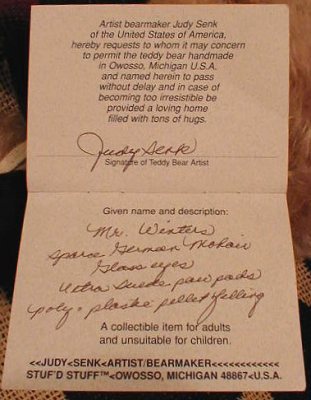 Artist bearmaker Judy Senk
of the United States of America,
hereby requests to whom it may concern
to permit the teddy bear handmade
in Owosso, Michigan U.S.A.
and named herein to pass
without delay and in case of
becoming too irresistible be
provided a loving home
filled with tons of hugs.
Judy Senk
Signature of Teddy Bear Artist
Given name and description:
Mr. Winters
sparse German Mohair
Glass eyes
Ultra Suede paw pads
poly + plastic pellet filling
A collectible item for adults
and unsuitable for children.
<<JUDY<SENK<ARTIST/BEARMAKER<<<<<<<<<<<<
STUF'D STUFF™<OWOSSO, MICHIGAN 48867<U.S.A.